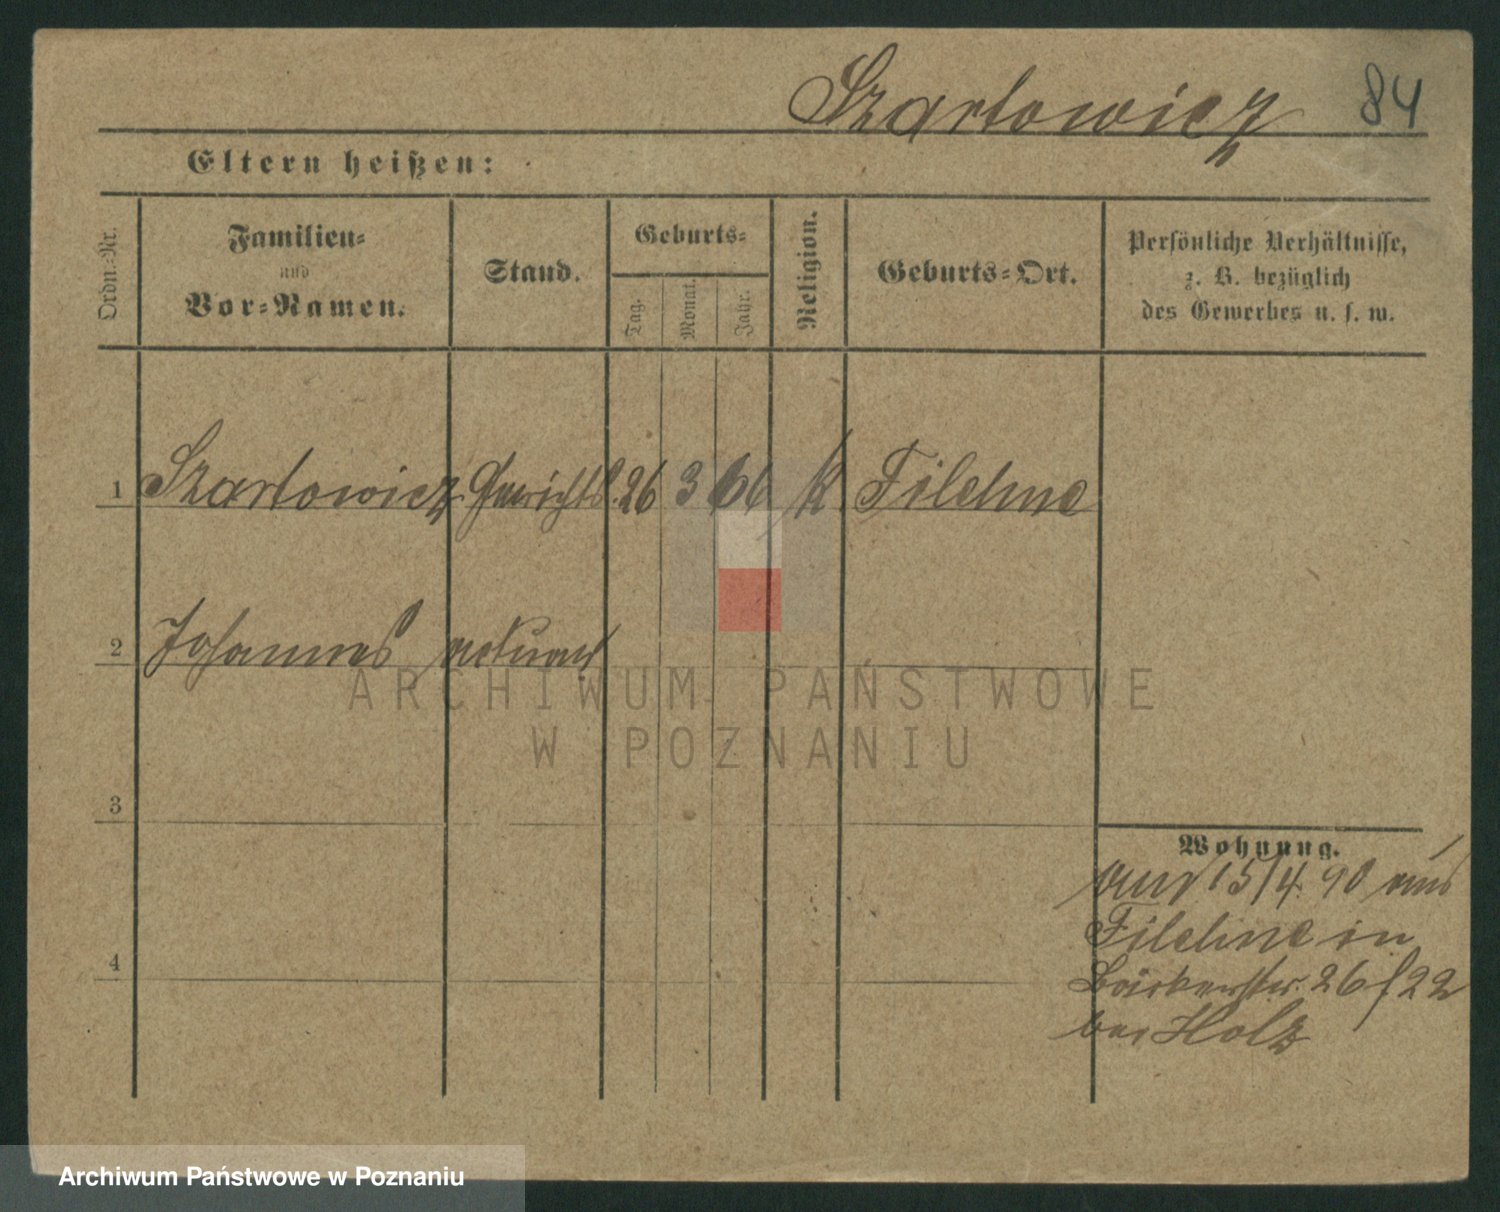 Szartowicz 84
Eltern heißen:
Ordn.-Nr.
Familien-
und
Vor-Namen.
Stand.
Geburts-
Tag.
Monat.
Jahr.
Religion.
Geburts-Ort.
Persönliche Verhältnisse,
z. B. bezüglich
des Gewerbes u. s. w.
1 Szartowicz Gerichts 26 3 66 K. Filehne
2 Johannes actuar
3
4
Wohnung.
15/4. 90 aus
Filehne in
Bäckerstr. 26 f 22
bei Holz
ARCHIWUM PAŃSTWOWE
W POZNANIU
Archiwum Państwowe w Poznaniu